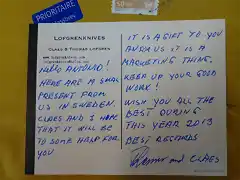 PRIORITAIRE
LOFGRENKNIVES
CLAES & THOMAS LOFGREN
HALLO ANTONIO!
HERE ARE A SMALL
PRESENT FROM
US IN SWEDEN.
CLAES AND I HOPE
THAT IT WILL BE
TO SOME HELP FOR
YOU
IT IS A GIFT TO YOU
AND FOR US IT IS A
MARKETING THING.
KEEP UP YOUR GOOD
WORK!
WISH YOU ALL THE
BEST DURING
THIS YEAR 2013
BEST RECORDS
and CLAES